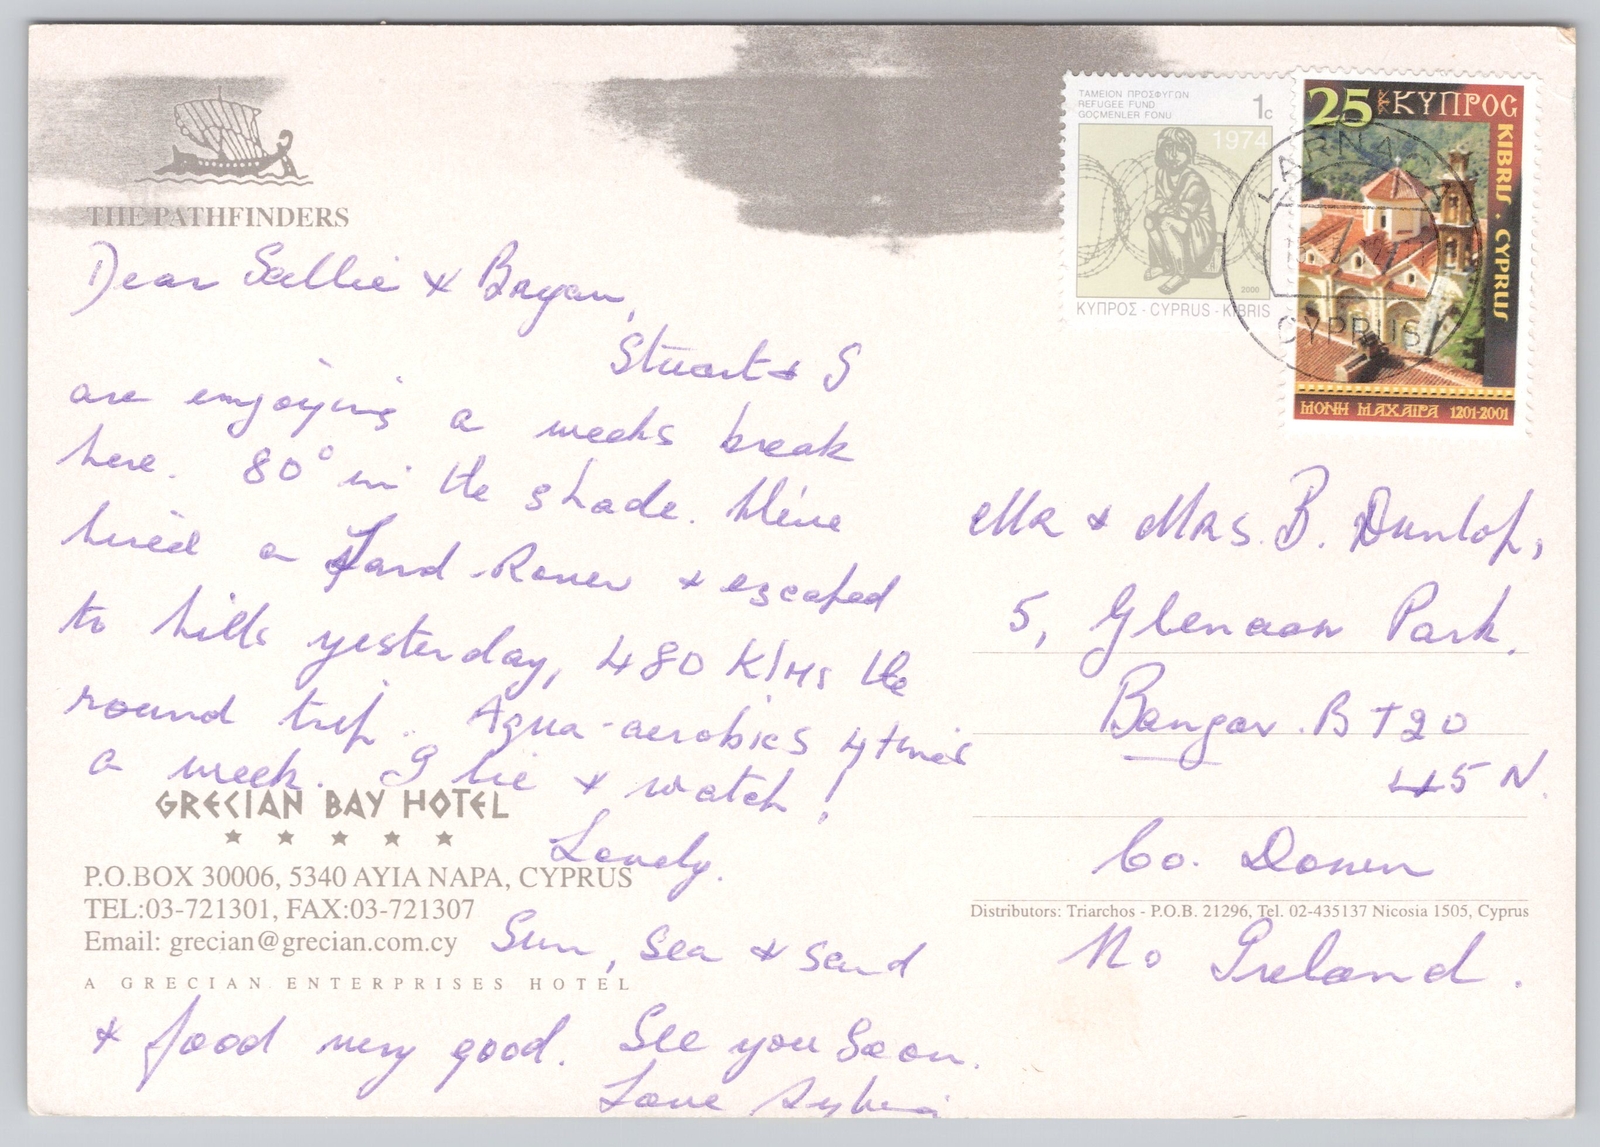 THE PATHFINDERS
Dear Sallie & Bryan,
Stuart & S
are enjoying a weeks break
here. 80° in the shade. We've
hired a Land Rover & escaped
to hills yesterday, 480 Klms the
round trip. Aqua-aerobics 4 times
a week. I lie & watch!
GRECIAN BAY HOTEL
★ ★ ★ ★ ★
Lovely.
P.O.BOX 30006, 5340 AYIA NAPA, CYPRUS
TEL:03-721301, FAX:03-721307
Email: grecian@grecian.com.cy
Sun, sea & sand
A GRECIAN ENTERPRISES HOTEL
& food very good. See you soon.
Love Sylvia
ΤΑΜΕΙΟΝ ΠΡΟΣΦΥΓΩΝ
REFUGEE FUND
GÖÇMENLER FONU
1c
1974
2000
ΚΥΠΡΟΣ - CYPRUS - KIBRIS
25 ΚΥΠΡΟΣ
KIBRIS · CYPRUS
ΜΟΝΗ ΜΑΧΑΙΡΑ 1201-2001
LARNA
CYPRUS
Mr & Mrs. B. Dunlop,
5, Glenaan Park.
Bangor. BT20
45N.
Co. Down
Distributors: Triarchos - P.O.B. 21296, Tel. 02-435137 Nicosia 1505, Cyprus
No Ireland.